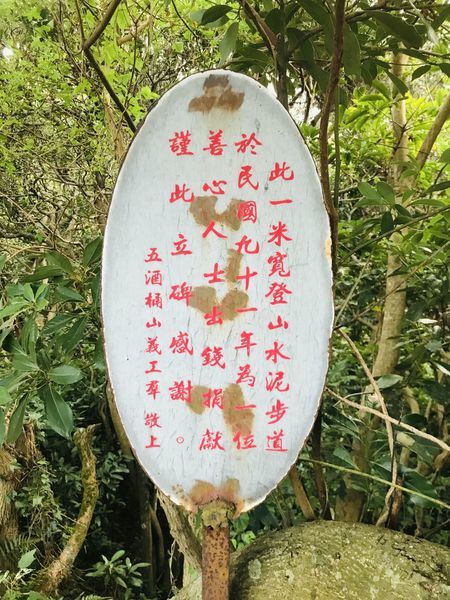 此一米寬登山水泥步道
於民國九十一年為一位
善心人士出錢捐獻
謹此立碑感謝。
五酒桶山義工羣 敬上